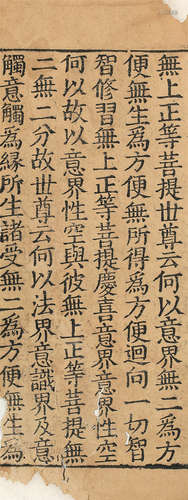 無上正等菩提世尊云何以意界無二為方
便無生為方便無所得為方便迴向一切智
智修習無上正等菩提慶喜意界意界性空
何以故以意界性空與彼無上正等菩提無
二無二分故世尊云何以法界意識界及意
觸意觸為緣所生諸受無二為方便無生為